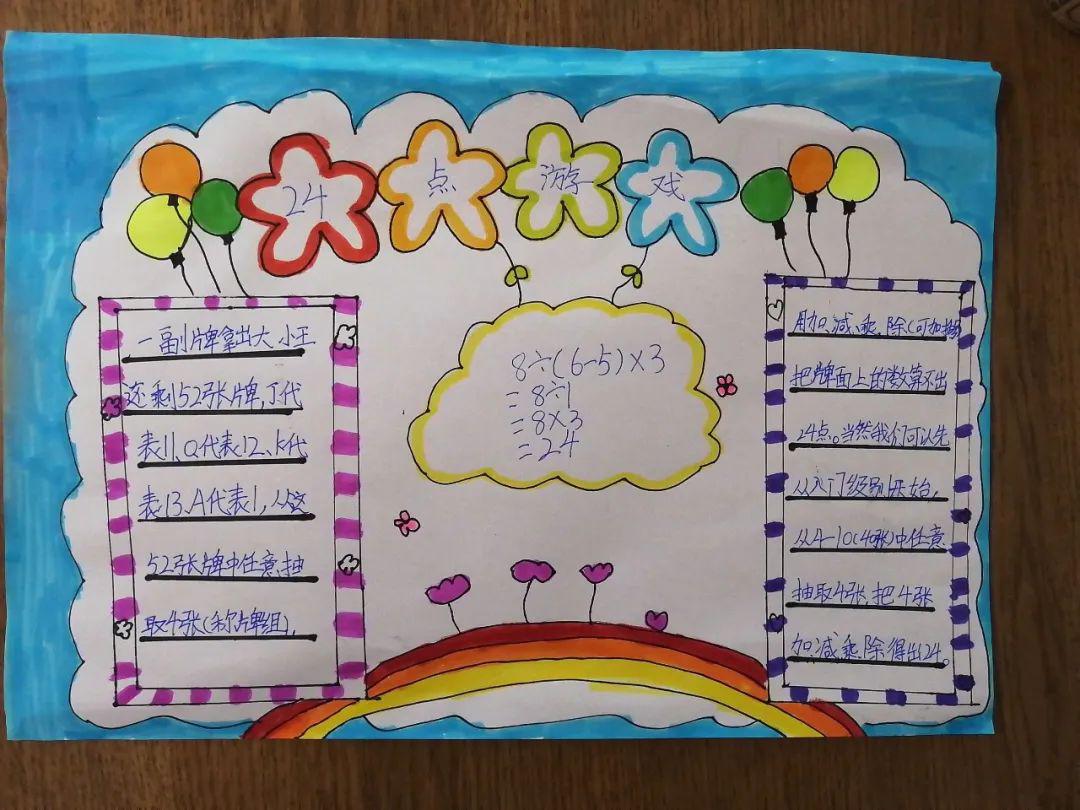 24点游戏
一副牌拿出大、小王
还剩52张牌,J代
表11、Q代表12、K代
表13、A代表1,从这
52张牌中任意抽
取4张(称牌组),
8÷(6-5)×3
=8÷1
=8×3
=24
用加、减、乘、除(可加括
把牌面上的数算不出
24点。当然我们可以先
从入门级别开始,
从A-10(40张)中任意
抽取4张,把4张
加、减、乘、除得出24。